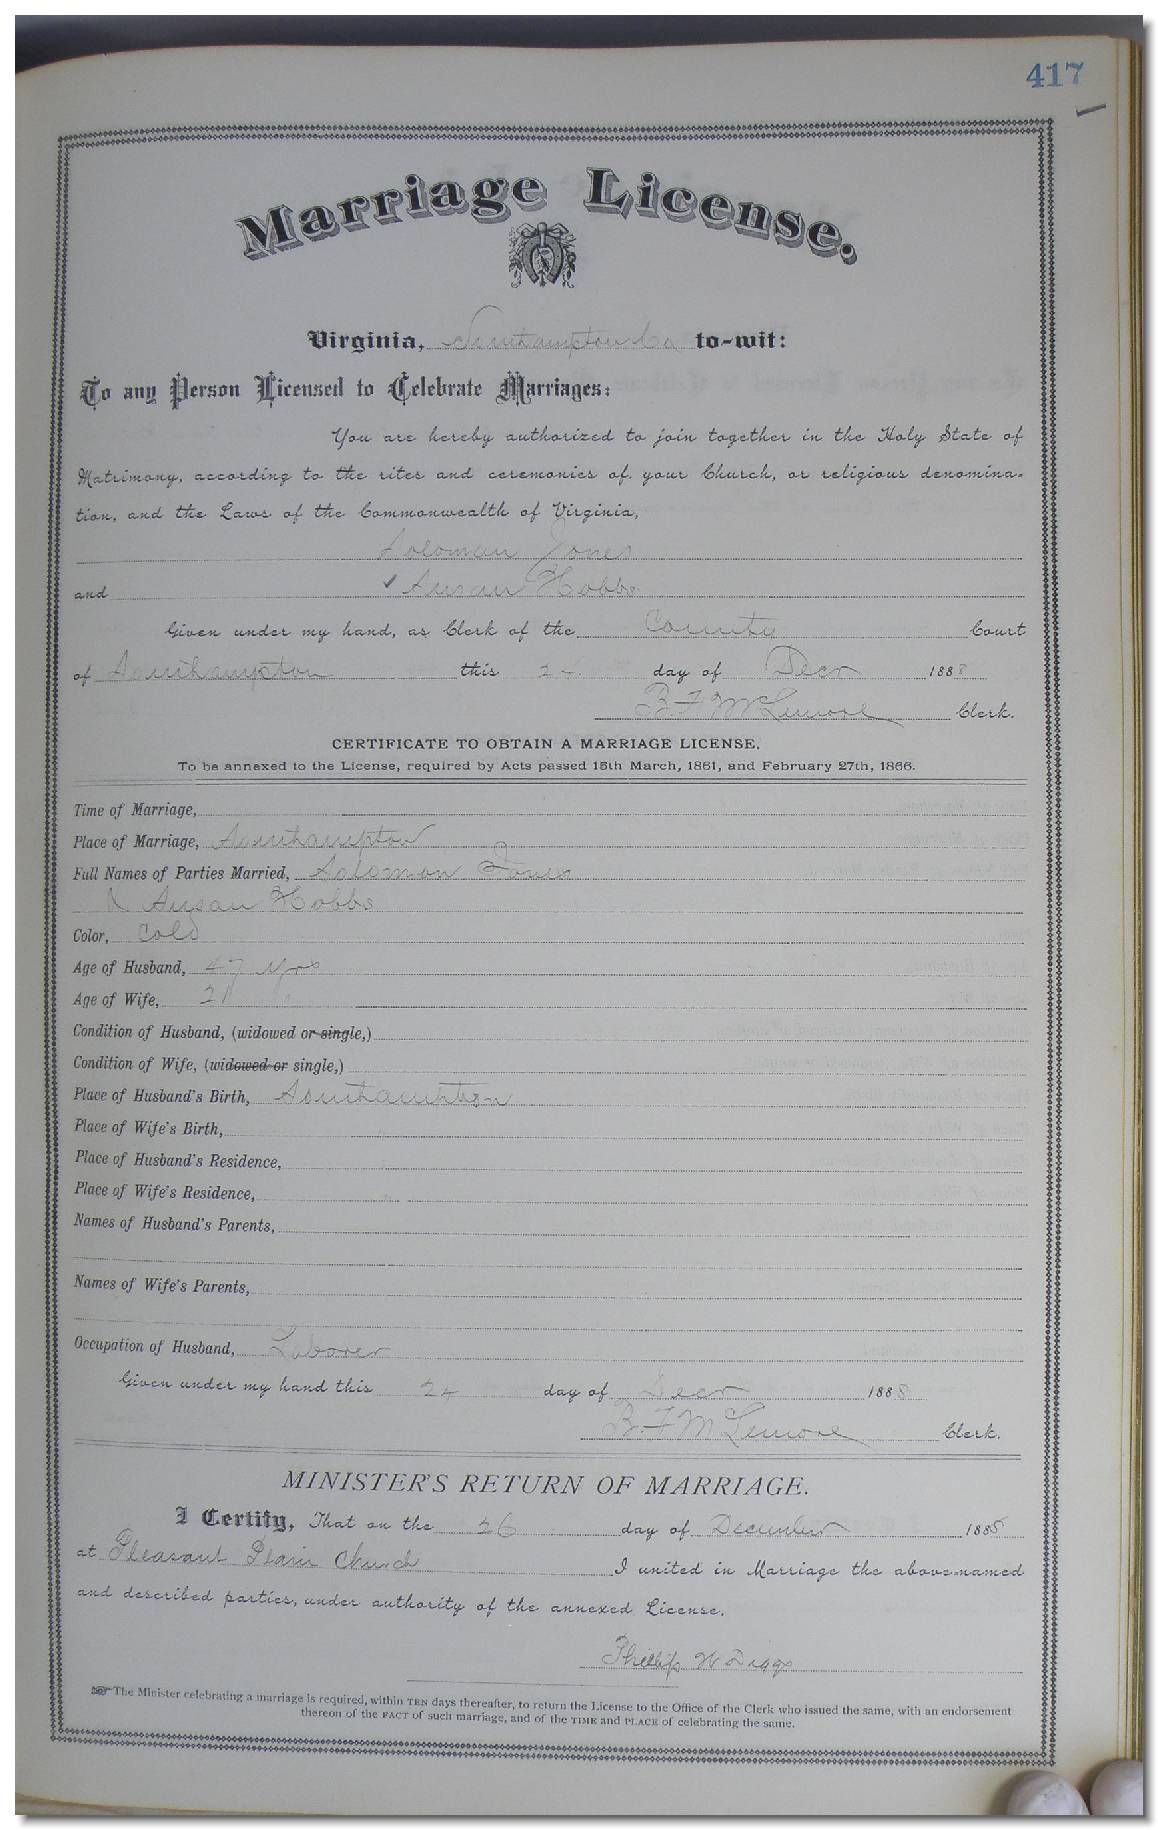 417
Marriage License.
Virginia, Southampton Co to-wit:
To any Person Licensed to Celebrate Marriages:
You are hereby authorized to join together in the Holy State of
Matrimony, according to the rites and ceremonies of your Church, or religious denomina-
tion, and the Laws of the Commonwealth of Virginia,
Soloman Jones
and Susan Hobbs
Given under my hand, as Clerk of the County Court
of Southampton this 24 day of Decr 1888
B. F. McLemore Clerk.
CERTIFICATE TO OBTAIN A MARRIAGE LICENSE.
To be annexed to the License, required by Acts passed 15th March, 1861, and February 27th, 1866.
Time of Marriage,
Place of Marriage, Southampton
Full Names of Parties Married, Solomon Jones
& Susan Hobbs
Color, Cold
Age of Husband, 47 yrs
Age of Wife, 21 "
Condition of Husband, (widowed or single,)
Condition of Wife, (widowed or single,)
Place of Husband's Birth, Southampton
Place of Wife's Birth, "
Place of Husband's Residence, "
Place of Wife's Residence, "
Names of Husband's Parents,
Names of Wife's Parents,
Occupation of Husband, Laborer
Given under my hand this 24 day of Decr 1888
B. F. McLemore Clerk.
MINISTER'S RETURN OF MARRIAGE.
I Certify, That on the 26 day of December 1888
at Pleasant Plain Church I united in Marriage the above-named
and described parties, under authority of the annexed License.
Phillip W Diggs
The Minister celebrating a marriage is required, within TEN days thereafter, to return the License to the Office of the Clerk who issued the same, with an endorsement
thereon of the FACT of such marriage, and of the TIME and PLACE of celebrating the same.